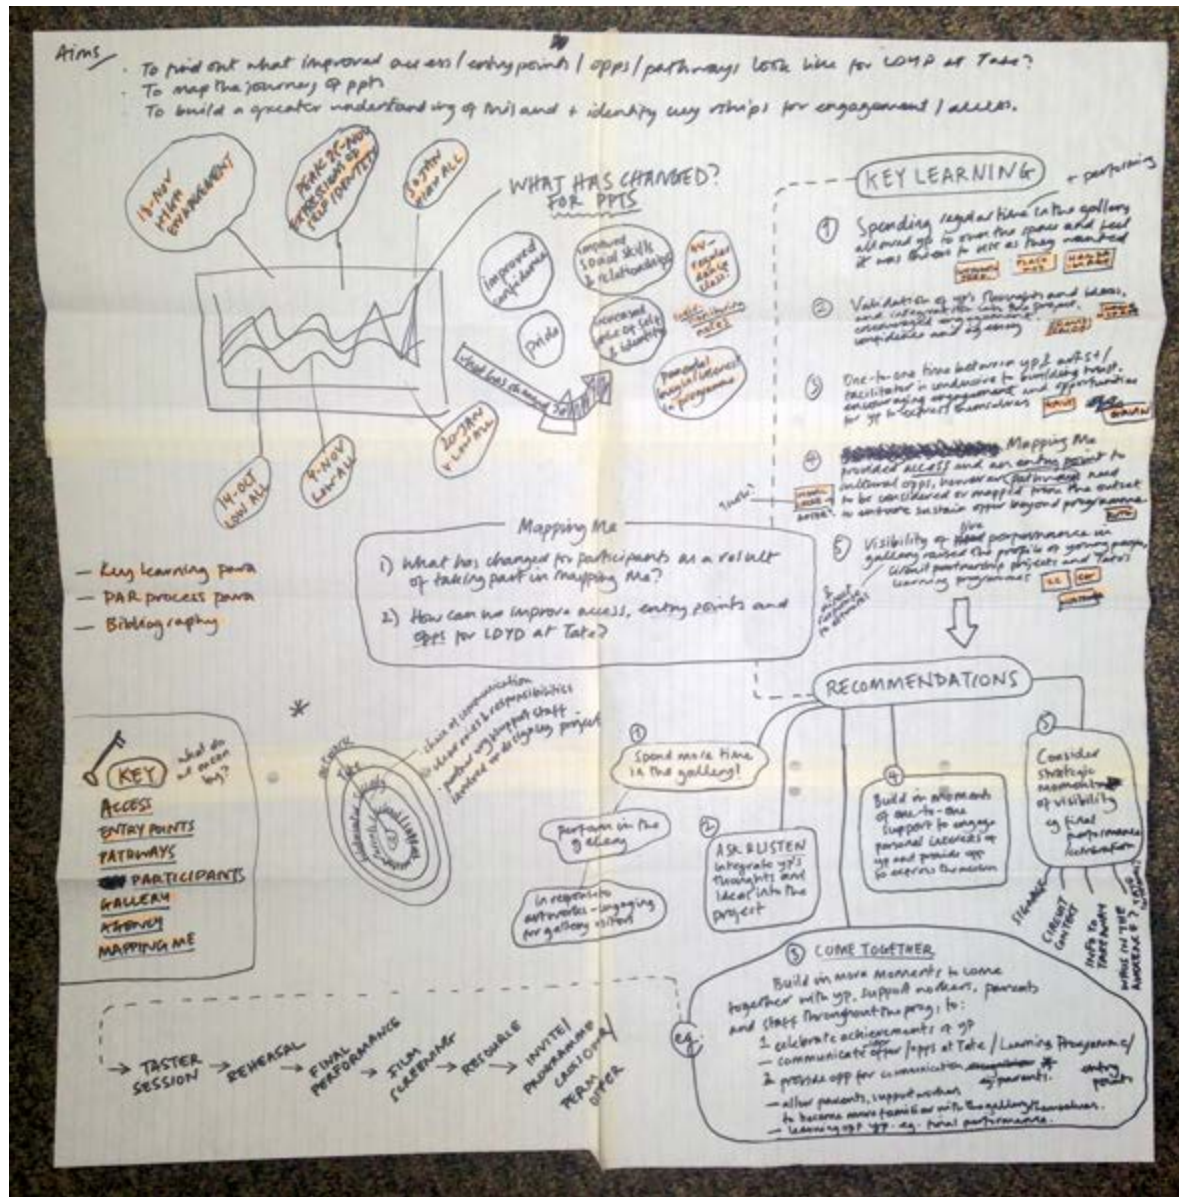 Aims
To find out what improved access/entry points/opps/pathways look like for LDYP at Tate?
To map the journey of ppts
To build a greater understanding of this and + identify key r'ships for engagement/access.
18-NOV
HIGH
ENGAGEMENT
PEAK 25-NOV
EXPRESSIONS OF
SELF IDENTITY
30-JAN
HIGH ALL
14-OCT
LOW ALL
4-NOV
LOW ALL
20-JAN
V. LOW ALL
WHAT HAS CHANGED?
FOR PPTS
improved
confidence
improved
social skills
& relationships
regular
dance
class!
pride
increased
sense of self
& identity
monitoring
notes
parental
buy in/interest
in programme
what has changed
KEY LEARNING
+ performing
1 Spending regular time in the gallery
allowed yp to own the space and feel
it was theirs to use as they wanted
2 Validation of yp's thoughts and ideas,
and integration into the project,
encouraged engagement,
confidence and agency
3 One-to-one time between yp & artist/
facilitator is conducive to building trust,
encouraging engagement and opportunities
for yp to express themselves
4 Mapping Me
provided access and an entry point to
cultural opps, however pathways need
to be considered or mapped from the outset
to ensure sustain offer beyond programme
5 Visibility of live performance in
gallery raised the profile of young people,
Circuit partnership projects and Tate's
learning programmes
Mapping Me
1) What has changed for participants as a result
of taking part in Mapping Me?
2) How can we improve access, entry points and
opps for LDYD at Tate?
- Key learning para
- PAR process para
- Bibliography
KEY
what do
we mean
by?
ACCESS
ENTRY POINTS
PATHWAYS
PARTICIPANTS
GALLERY
AGENCY
MAPPING ME
chain of communication
clear roles & responsibilities
support staff
project
RECOMMENDATIONS
1
Spend more time
in the gallery!
perform in the
gallery
in response to
artworks - engaging
for gallery visitors
2
ASK & LISTEN
integrate yp's
thoughts and
ideas into the
project
4
Build in moments
of one-to-one
support to engage
personal interests of
yp and provide opp
to express themselves
5
Consider
strategic
moments
of visibility
eg final
performance
SIGNAGE
CIRCUIT
CONTEXT
INFO TO
TAKEAWAY
WHO'S IN THE
AUDIENCE?
3 COME TOGETHER
Build in more moments to come
together with yp, support workers, parents
and staff throughout the prog, to:
1 celebrate achievements of yp
- communicate offer/opps at Tate/Learning Programme/
entry
points
2 provide opp for communication
eg parents.
- allow parents, support workers
to become more familiar with the gallery themselves.
- learning opp yp. eg. final performance.
eg.
→ TASTER
SESSION
→ REHEARSAL
→ FINAL
PERFORMANCE
→ FILM
SCREENING
→ RESOURCE
→ INVITE/
PROGRAMME
PERM
OFFER